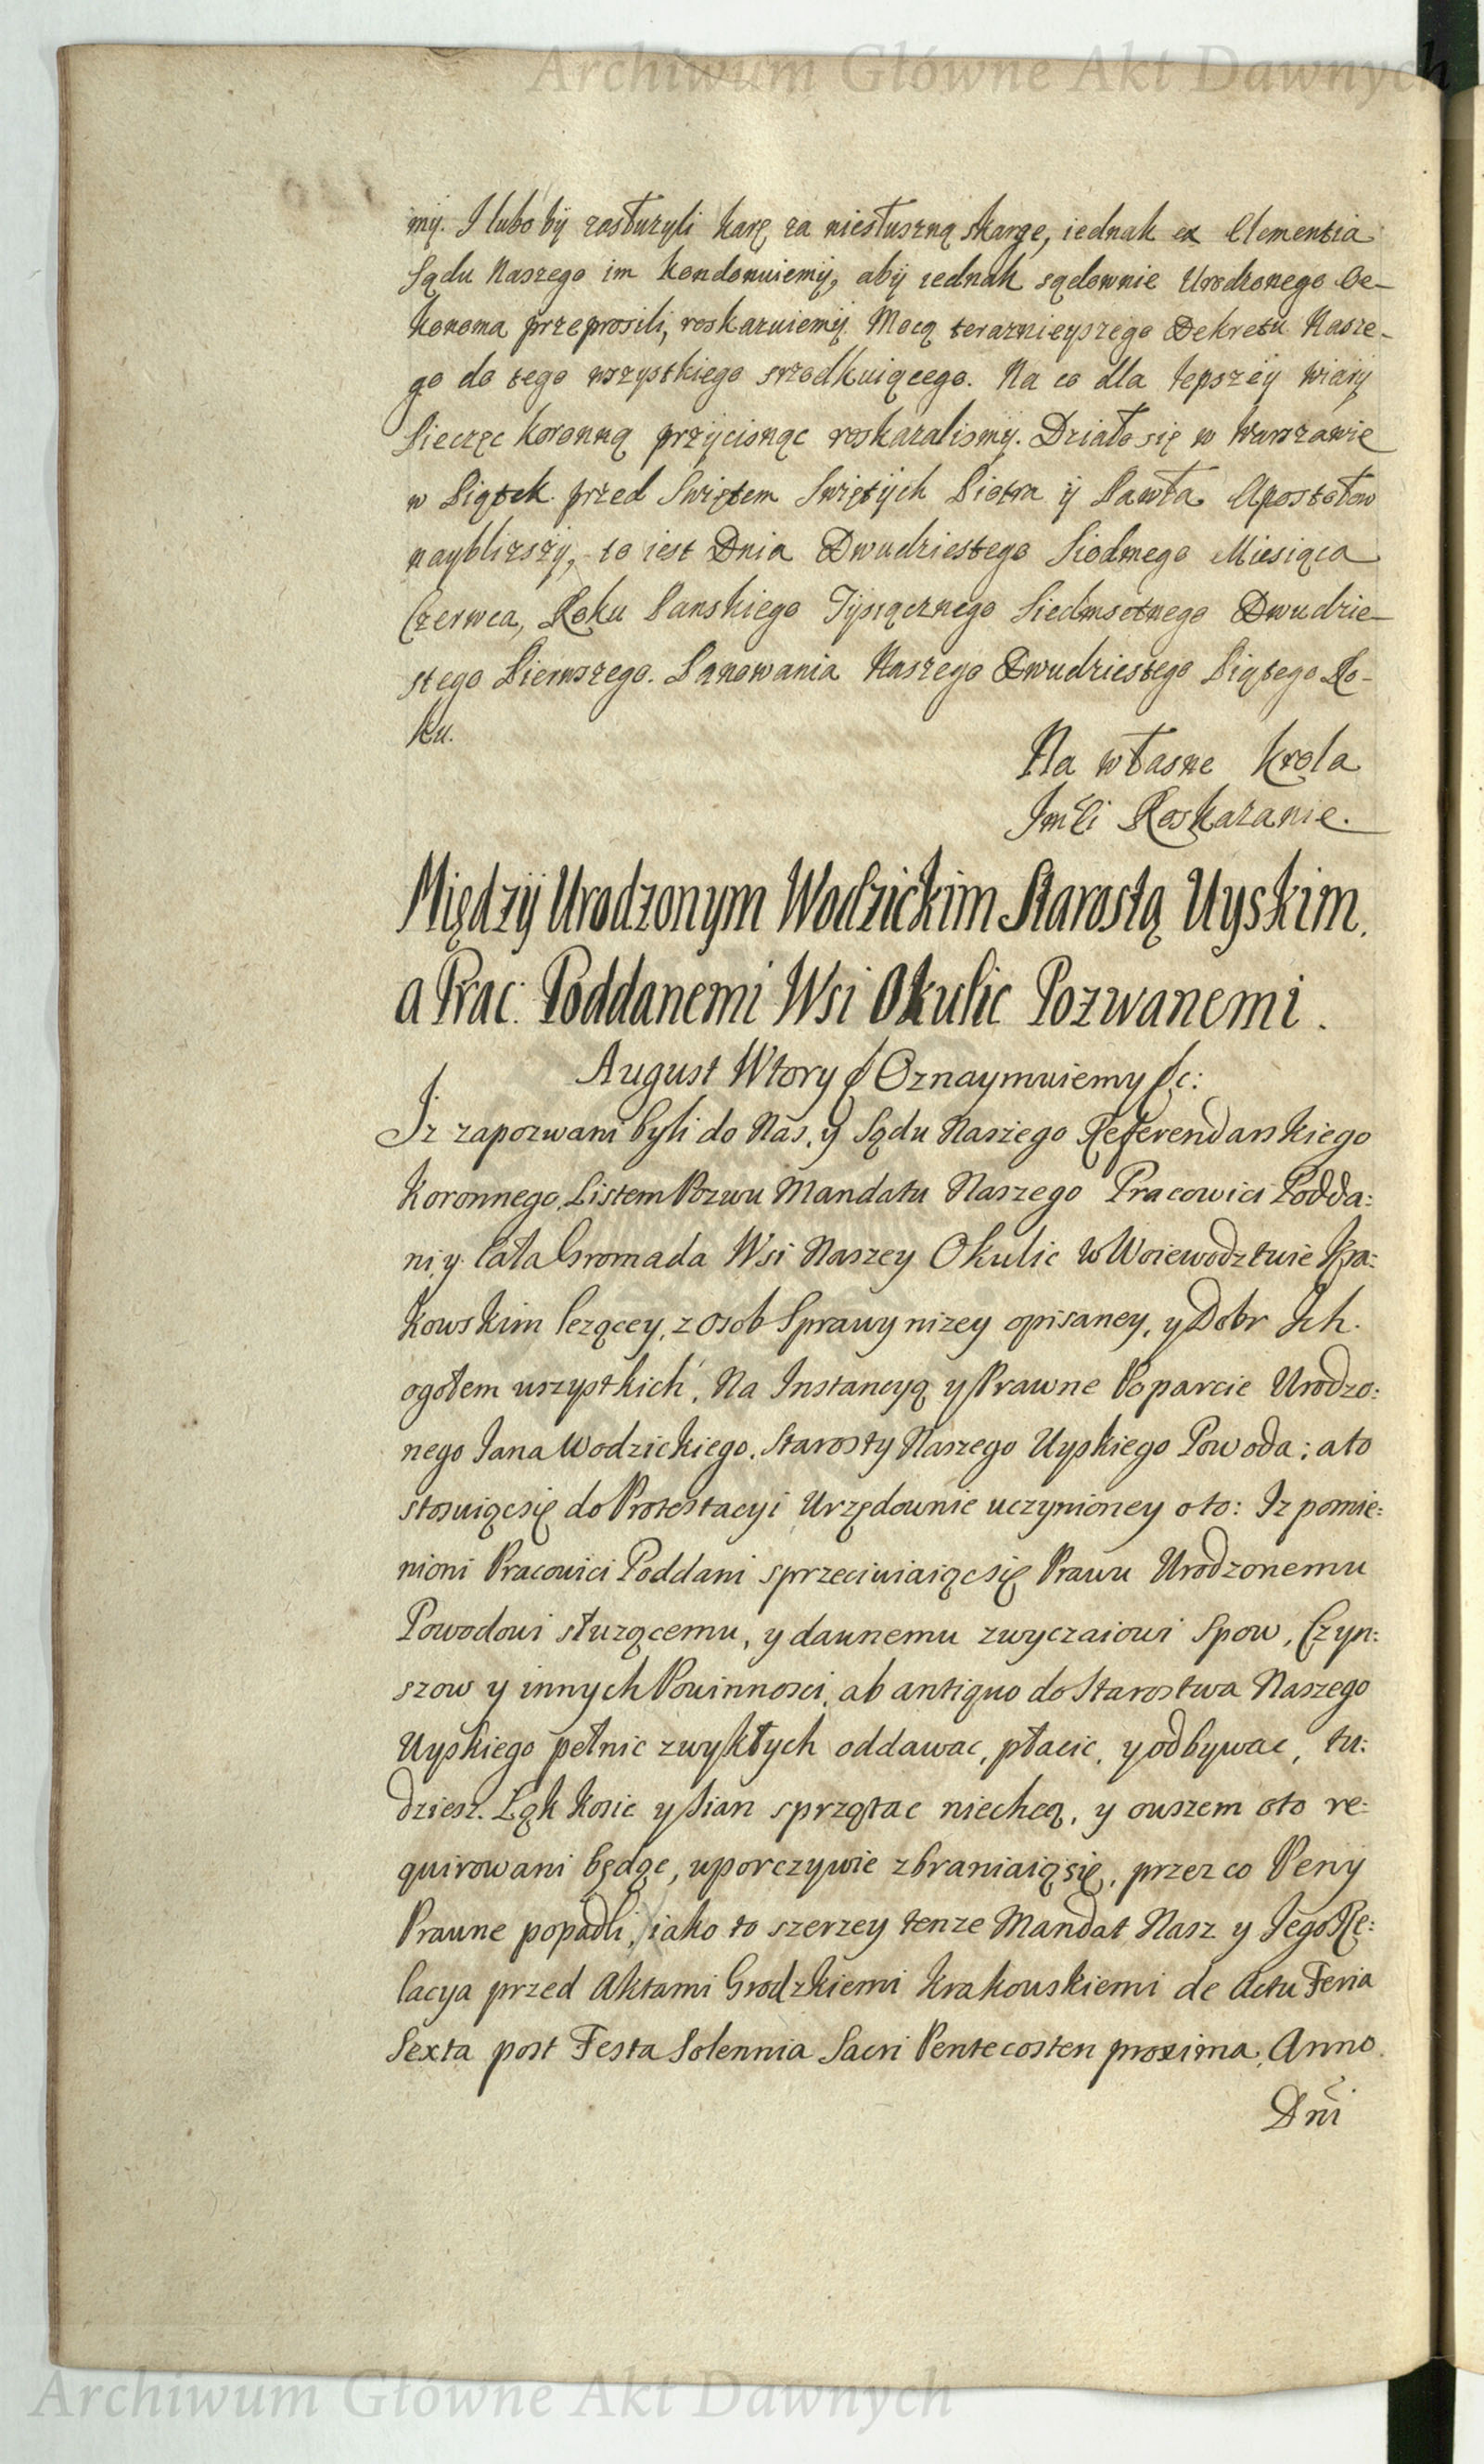 Archiwum Główne Akt Dawnych
mÿ. I lubo bÿ zasłuzyli karę za niesłuszną skargę, iednak ex Clementia
Sądu Naszego im kondonuiemÿ, abÿ iednak sądownie Urodzonego Oe-
konoma przeprosili, roskazuiemÿ. Mocą teraznieyszego Dekretu Nasze-
go do tego wszystkiego srzodkuiącego. Na co dla lepszeÿ wiarÿ
Pieczęc koronną przÿcisnąc roskazalismÿ. Działo się w Warszawie
w Piątek przed Swiętem Swiętÿch Piotra ÿ Pawła Apostołow
nayblizszÿ, to iest Dnia Dwudziestego Siodmego Miesiąca
Czerwca, Roku Panskiego Tÿsiącznego Siedmsetnego Dwudzie-
stego Pierwszego. Panowania Naszego Dwudziestego Piątego Ro-
ku.
Na własne Krola
Jmći Roskazanie.
Międzÿ Urodzonym Wodzickim Starostą Uyskim,
a Prac: Poddanemi Wsi Okulic Pozwanemi.
August Wtory &c Oznaymuiemy &c:
Iz zapozwani byli do Nas, y Sądu Naszego Referendarskiego
Koronnego, Listem Pozwu Mandatu Naszego Pracowici Podda:
ni, y cała Gromada Wsi Naszey Okulic w Woiewodztwie Kra:
kowskim lezącey, z Osob Sprawy nizey opisaney, y Dobr Ich.
ogołem wszystkich, Na Instancyą y Prawne Poparcie Urodzo:
nego Jana Wodzickiego, Starosty Naszego Uyskiego Powoda; a to
stosuiącsię do Protestacyi Urzędownie uczynioney oto: Iz pomie:
nioni Pracowici Poddani sprzeciwiaiącsię Prawu Urodzonemu
Powodowi słuzącemu, y dawnemu zwyczaiowi Spow, Czyn:
szow y innych Powinnosci, ab antiquo do Starostwa Naszego
Uyskiego pełnic zwykłych oddawac, płacic, y odbywac, tu:
dziesz Ląk kosic y Sian sprzątac niechcą, y owszem oto re:
quirowani będąc, uporczywie zbraniaiąsię, przez co Peny
Prawne popadli, iako to szerzey tenze Mandat Nasz y Jego Re:
lacya przed Aktami Grodzkiemi Krakowskiemi de Actu Feria
Sexta post Festa Solennia Sacri Pentecosten proxima, Anno
Dni
Archiwum Główne Akt Dawnych